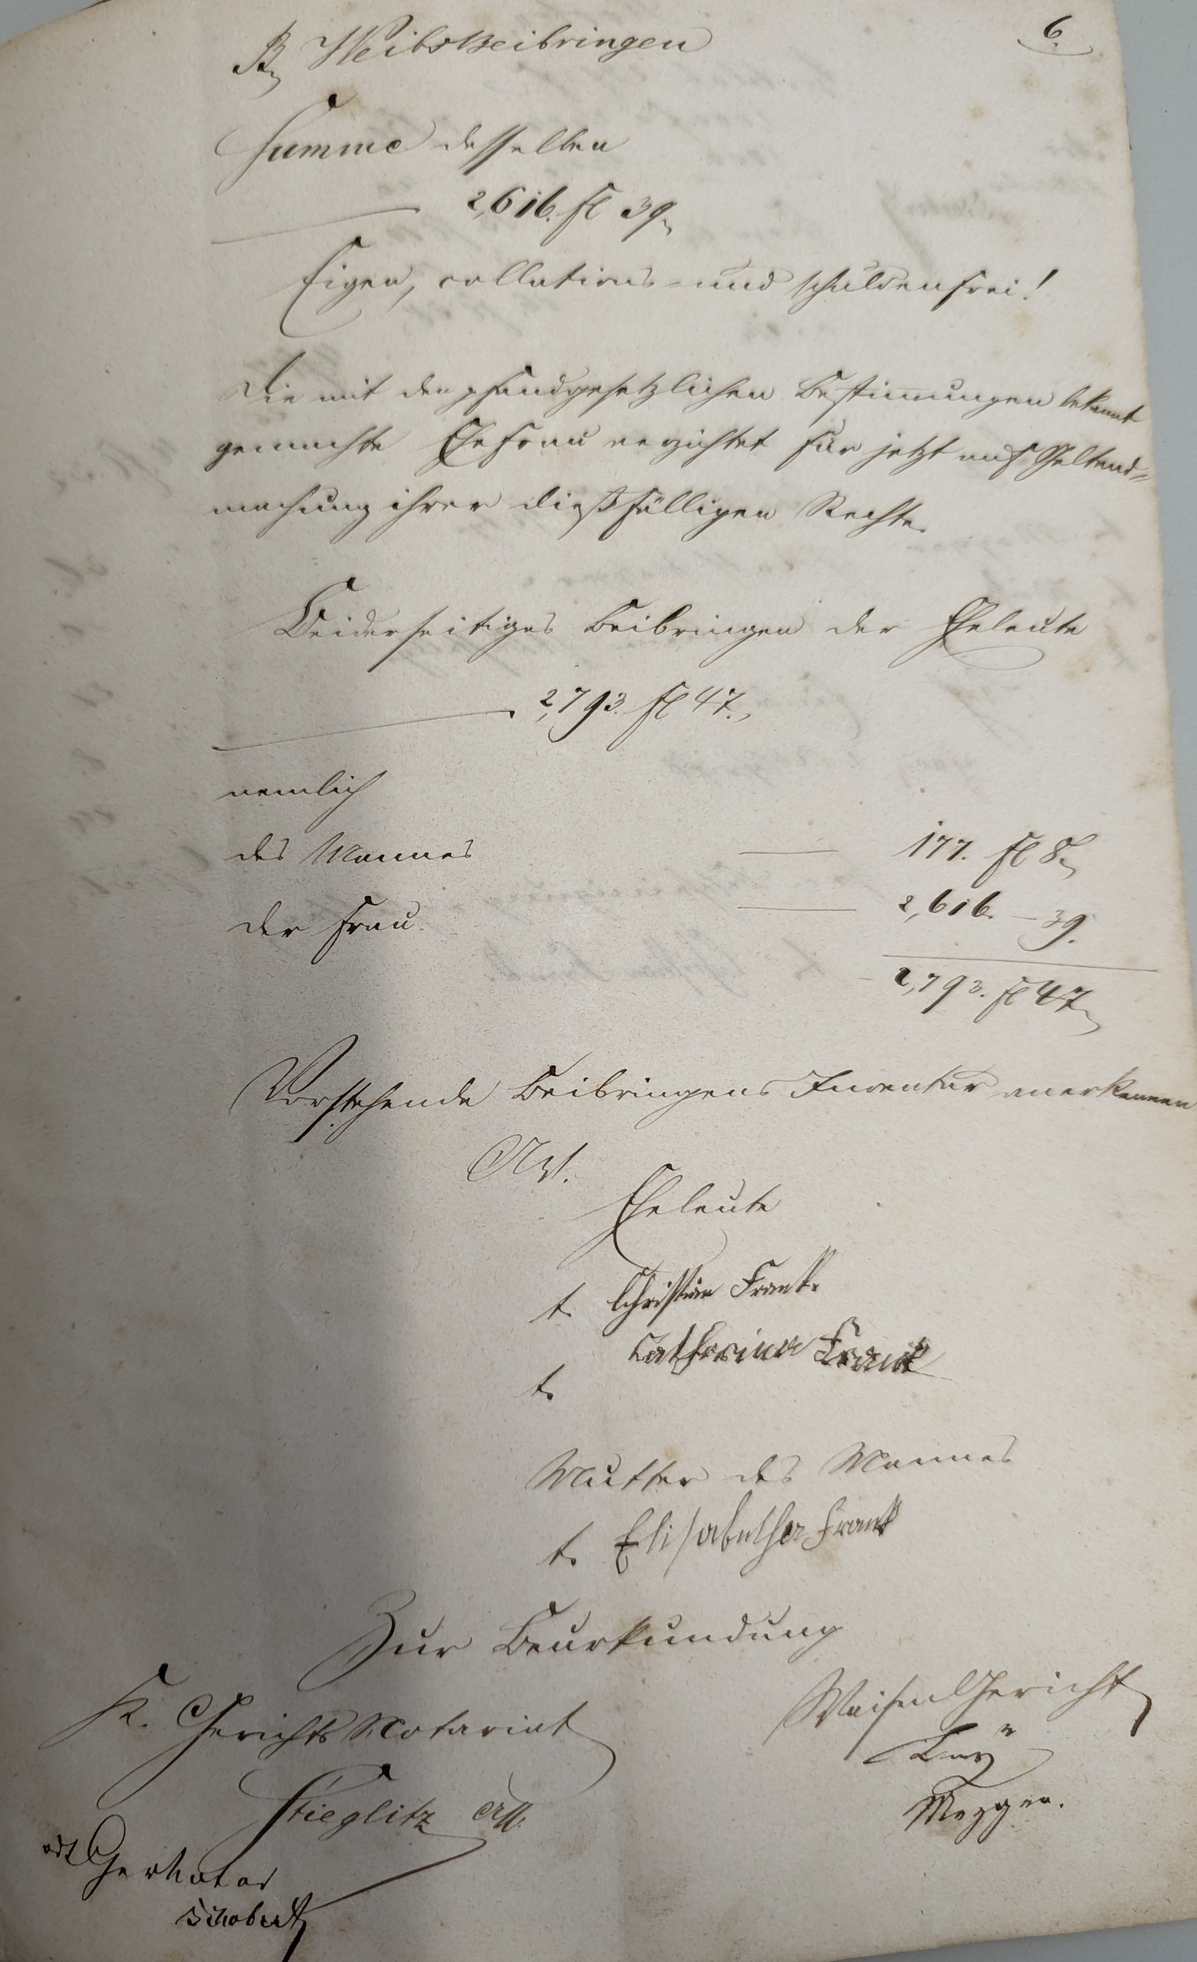 6.
B., WeibsBeibringen
Summe desselben
2,616. fl 39.
Eigen, collations- und schuldenfrei!
Die mit den pfandgesetzlichen Bestimmungen bekannt
gemachte Ehefrau verzichtet für jetzt auf Geltend-
machung ihrer dießfälligen Rechte.
Beiderseitiges Beibringen der Eheleute
2,793. fl 47.
nemlich
des Mannes — 177. fl 8.
der Frau. — 2,616. — 39.
2,793. fl 47.
Vorstehende Beibringens Inventur anerkennen
Eheleute
t. Christian Frank.
Catharina Frank
t.
Mutter des Mannes
t. Elisabetha Frank
Zur Beurkundung
K. GerichtsNotariat
Stieglitz
WaisenGericht
Mezger.
Schobert